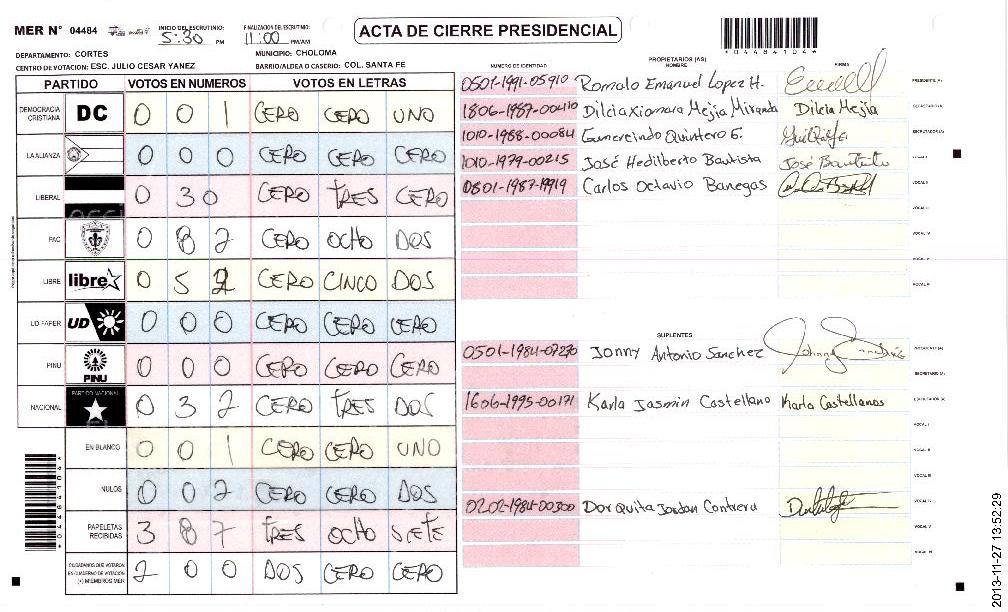 MER N° 04484
INICIO DEL ESCRUTINIO: 5:30 PM
FINALIZACION DEL ESCRUTINIO: 11:00 PM/AM
ACTA DE CIERRE PRESIDENCIAL
*04484104*
DEPARTAMENTO: CORTES
MUNICIPIO: CHOLOMA
CENTRO DE VOTACION: ESC. JULIO CESAR YANEZ
BARRIO/ALDEA O CASERIO: COL. SANTA FE
PARTIDO VOTOS EN NUMEROS VOTOS EN LETRAS
DEMOCRACIA CRISTIANA DC 0 0 1 CERO CERO UNO
LA ALIANZA 0 0 0 CERO CERO CERO
LIBERAL 0 3 0 CERO TRES CERO
PAC 0 8 2 CERO OCHO DOS
LIBRE libre 0 5 2 CERO CINCO DOS
UD FAPER UD 0 0 0 CERO CERO CERO
PINU PINU 0 0 0 CERO CERO CERO
NACIONAL PARTIDO NACIONAL 0 3 2 CERO TRES DOS
EN BLANCO 0 0 1 CERO CERO UNO
NULOS 0 0 2 CERO CERO DOS
PAPELETAS RECIBIDAS 3 8 7 TRES OCHO SIETE
CIUDADANOS QUE VOTARON EN CUADERNO DE VOTACION (+) MIEMBROS MER 2 0 0 DOS CERO CERO
*04484104*
PROPIETARIOS (AS)
NUMERO DE IDENTIDAD NOMBRE FIRMA
0501-1991-05910 Romalo Emanuel Lopez H. PRESIDENTE (A)
1806-1987-00410 Dilcia Xiomara Mejia Miranda Dilcia Mejia SECRETARIO (A)
1010-1988-00084 Gumercindo Quintero G. ESCRUTADOR (A)
1010-1979-00215 José Hedilberto Bautista José Bautista VOCAL I
0801-1987-19919 Carlos Octavio Banegas VOCAL II
VOCAL III
VOCAL IV
VOCAL V
VOCAL VI
SUPLENTES
0501-1984-07230 Jonny Antonio Sanchez PRESIDENTE (A)
SECRETARIO (A)
1606-1995-00171 Karla Jasmin Castellano Karla Castellanos ESCRUTADOR (A)
VOCAL I
VOCAL II
VOCAL III
0202-1984-00300 Dorquita Jordan Contrera VOCAL IV
VOCAL V
VOCAL VI
2013-11-27 13:52:29